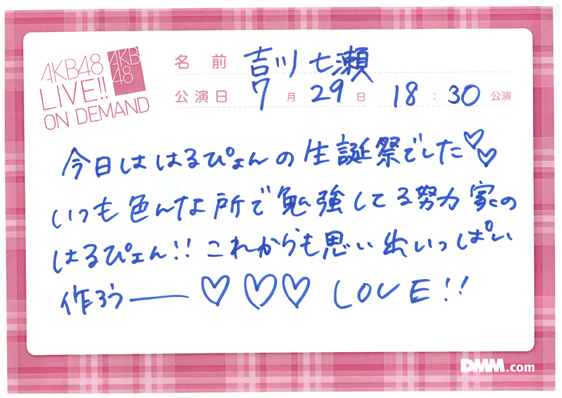 AKB48
LIVE!!
ON DEMAND
AKB
48
名前 吉川七瀬
公演日 7月29日 18:30公演
今日ははるぴょんの生誕祭でした♡♡
いつも色んな所で勉強してる努力家の
はるぴょん!!これからも思い出いっぱい
作ろうー♡♡♡ LOVE!!
DMM.com